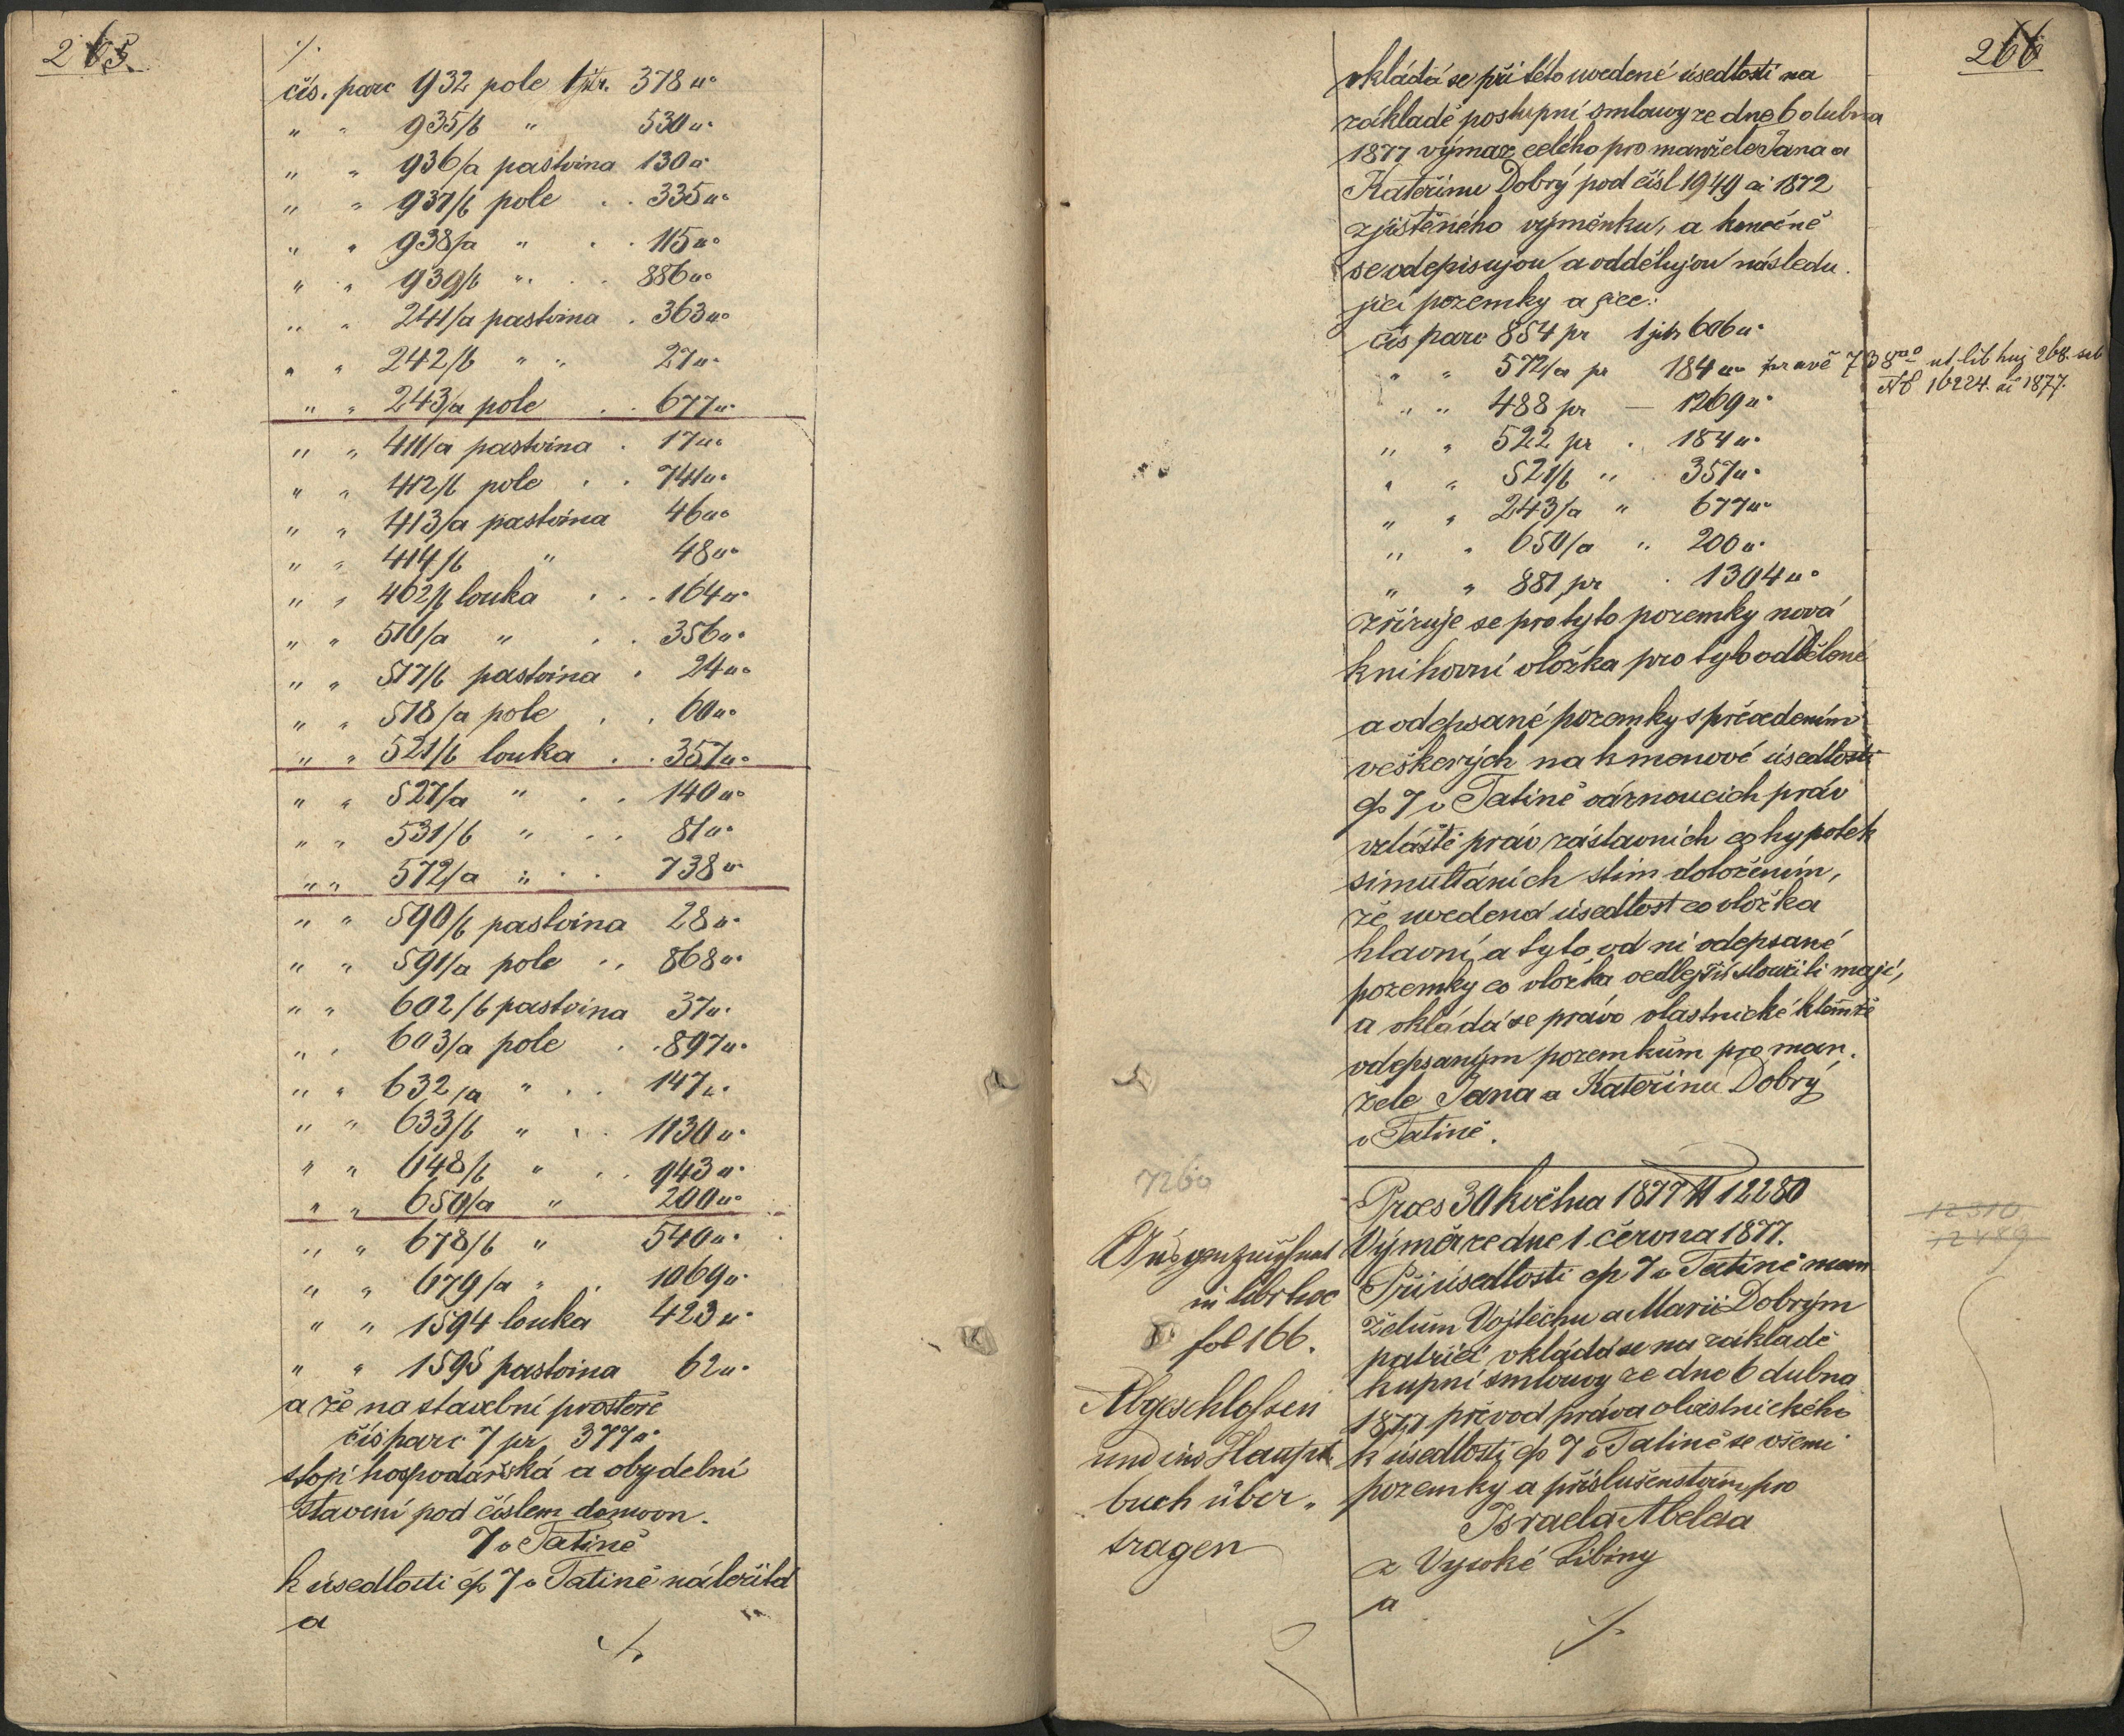 265.
./.
čís. parc 932 pole 1 jtr. 378 □°
" " 935/b " 530 □°
" " 936/a pastvina 130 □°
" " 937/b pole . . 335 □°
" " 938/a " . . 115 □°
" " 939/b " . . 886 □°
" " 241/a pastvina . 363 □°
" " 242/b " " 27 □°
" " 243/a pole . . 677 □°
" " 411/a pastvina . 17 □°
" " 412/b pole . . 741 □°
" " 413/a pastvina 46 □°
" " 414/b " 48 □°
" " 462/b louka . . . 164 □°
" " 516/a " . . 356 □°
" " 517/b pastvina . 24 □°
" " 518/a pole . . 60 □°
" " 521/b louka . . 357 □°
" " 527/a " . . 140 □°
" " 531/b " . . 81 □°
" " 572/a " . . 738 □°
" " 590/b pastvina 28 □°
" " 591/a pole . . 868 □°
" " 602/b pastvina 37 □°
" " 603/a pole . . 897 □°
" " 632/a " . . 147 □°
" " 633/b " . . 1130 □°
" " 648/b " . . 943 □°
" " 650/a " 200 □°
" " 678/b " 540 □°
" " 679/a " . 1069 □°
" " 1594 louka 423 □°
" " 1595 pastvina 62 □°
a že na stavební prostoře
čís parc 7 pr 377 □°
stojí hospodářská a obydelní
stavení pod číslem domovn.
7 v Tatině
k úsedlosti čp 7 v Tatině náležitá
a
./.
266
vkládá se při této uvedené úsedlosti na
základě postupní smlouvy ze dne 6 dubna
1877 výmaz celého pro manžele Jana a
Kateřinu Dobrý pod čísl 1949 ai 1872
zjištěného výměnku, a konečně
se odepisujou a oddělujou následu.
jící pozemky a sice:
čís parc 854 pr 1 jitr 606 □°
" " 572/a pr 184 □° pravě 738 □° ut lib huj 268. sub
№ 16224. ai 1877.
" " 488 pr — 1269 □°
" " 522 pr . 184 □°
" " 521/b " . 357 □°
" " 243/a " 677 □°
" " 650/a " 200 □°
" " 881 pr . 1304 □°
zřizuje se pro tyto pozemky nová
knihovní vložka pro tyto oddělené
a odepsané pozemky s převedením
veškerých na kmenové úsedlosti
čp 7 v Tatině váznoucích práv
vzláště práv zástavních co hypotek
simultáních stím doložením,
že uvedená úsedlost co vložka
hlavní a tyto od ní odepsané
pozemky co vložka vedlejší sloužiti mají,
a vkládá se právo vlastnické k těmže
odepsaným pozemkům pro man.
žele Jana a Kateřinu Dobrý
v Tatině.
7260
Praes 30 května 1877 № 12280
12310
12489
Výměr ze dne 1. června 1877.
Při úsedlosti čp 7 v Tatině man
želům Vojtěchu a Marii Dobrým
patřící vkládá se na základě
kupní smlouvy ze dne 6 dubna
1877 převod práva vlastnického
k úsedlosti čp 7 v Tatině se všemi
pozemky a příslušenstvím pro
Israela Abelesa
z Vysoké Libiny
a
./.
Ausgezeichnet
in libr hoc
fol 166.
Abgeschlossen
und ins Haupt
buch über„
tragen